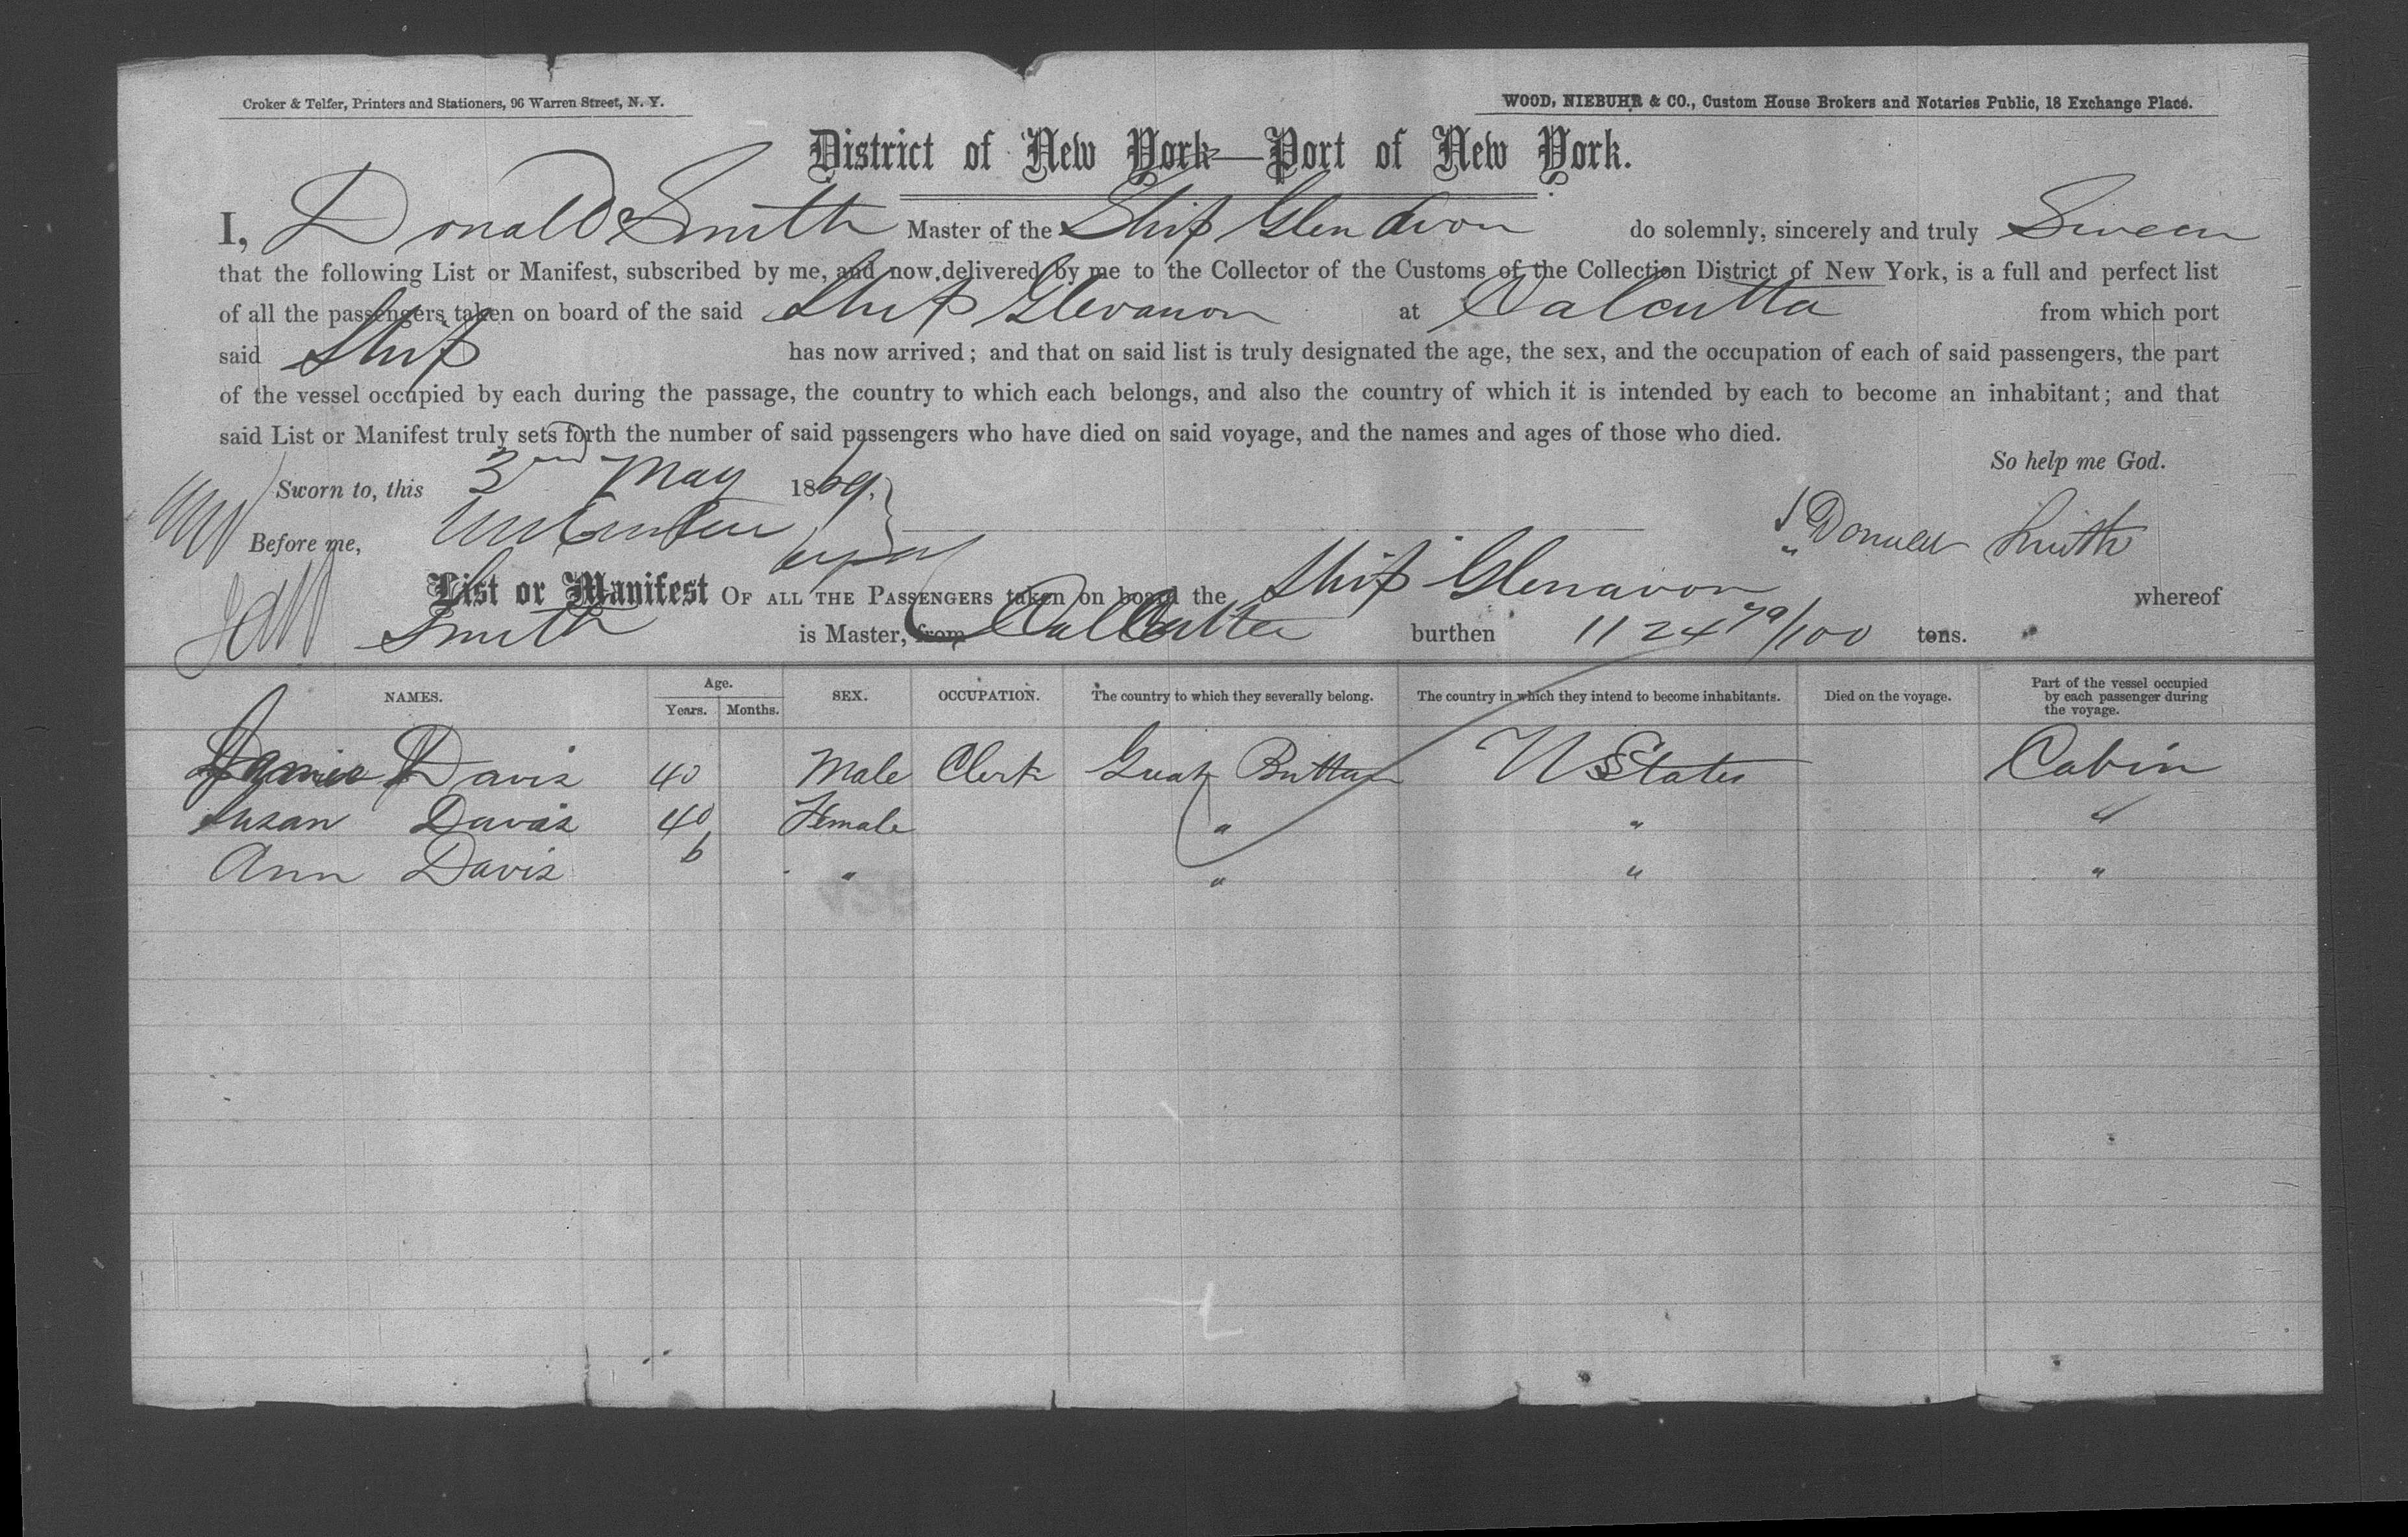 Croker & Telfer, Printers and Stationers, 96 Warren Street, N. Y.
WOOD, NIEBUHR & CO., Custom House Brokers and Notaries Public, 18 Exchange Place.
District of New York—Port of New York.
I, Donald Smith Master of the Ship Glen avon do solemnly, sincerely and truly Swear
that the following List or Manifest, subscribed by me, and now delivered by me to the Collector of the Customs of the Collection District of New York, is a full and perfect list
of all the passengers taken on board of the said Ship Glevanon at Calcutta from which port
said Ship has now arrived; and that on said list is truly designated the age, the sex, and the occupation of each of said passengers, the part
of the vessel occupied by each during the passage, the country to which each belongs, and also the country of which it is intended by each to become an inhabitant; and that
said List or Manifest truly sets forth the number of said passengers who have died on said voyage, and the names and ages of those who died.
So help me God.
Sworn to, this 3rd May 1869.
Before me,
Donald Smith
List or Manifest OF ALL THE PASSENGERS taken on board the Ship Glenavon whereof
Smith is Master, from Calcutta burthen 1124 79/100 tons.
NAMES. Age. Years. Months. SEX. OCCUPATION. The country to which they severally belong. The country in which they intend to become inhabitants. Died on the voyage. Part of the vessel occupied by each passenger during the voyage.
James Davis 40 Male Clerk Great Brittain U SStates Cabin
Susan Davis 40 Female " " "
Ann Davis 6 " " " "